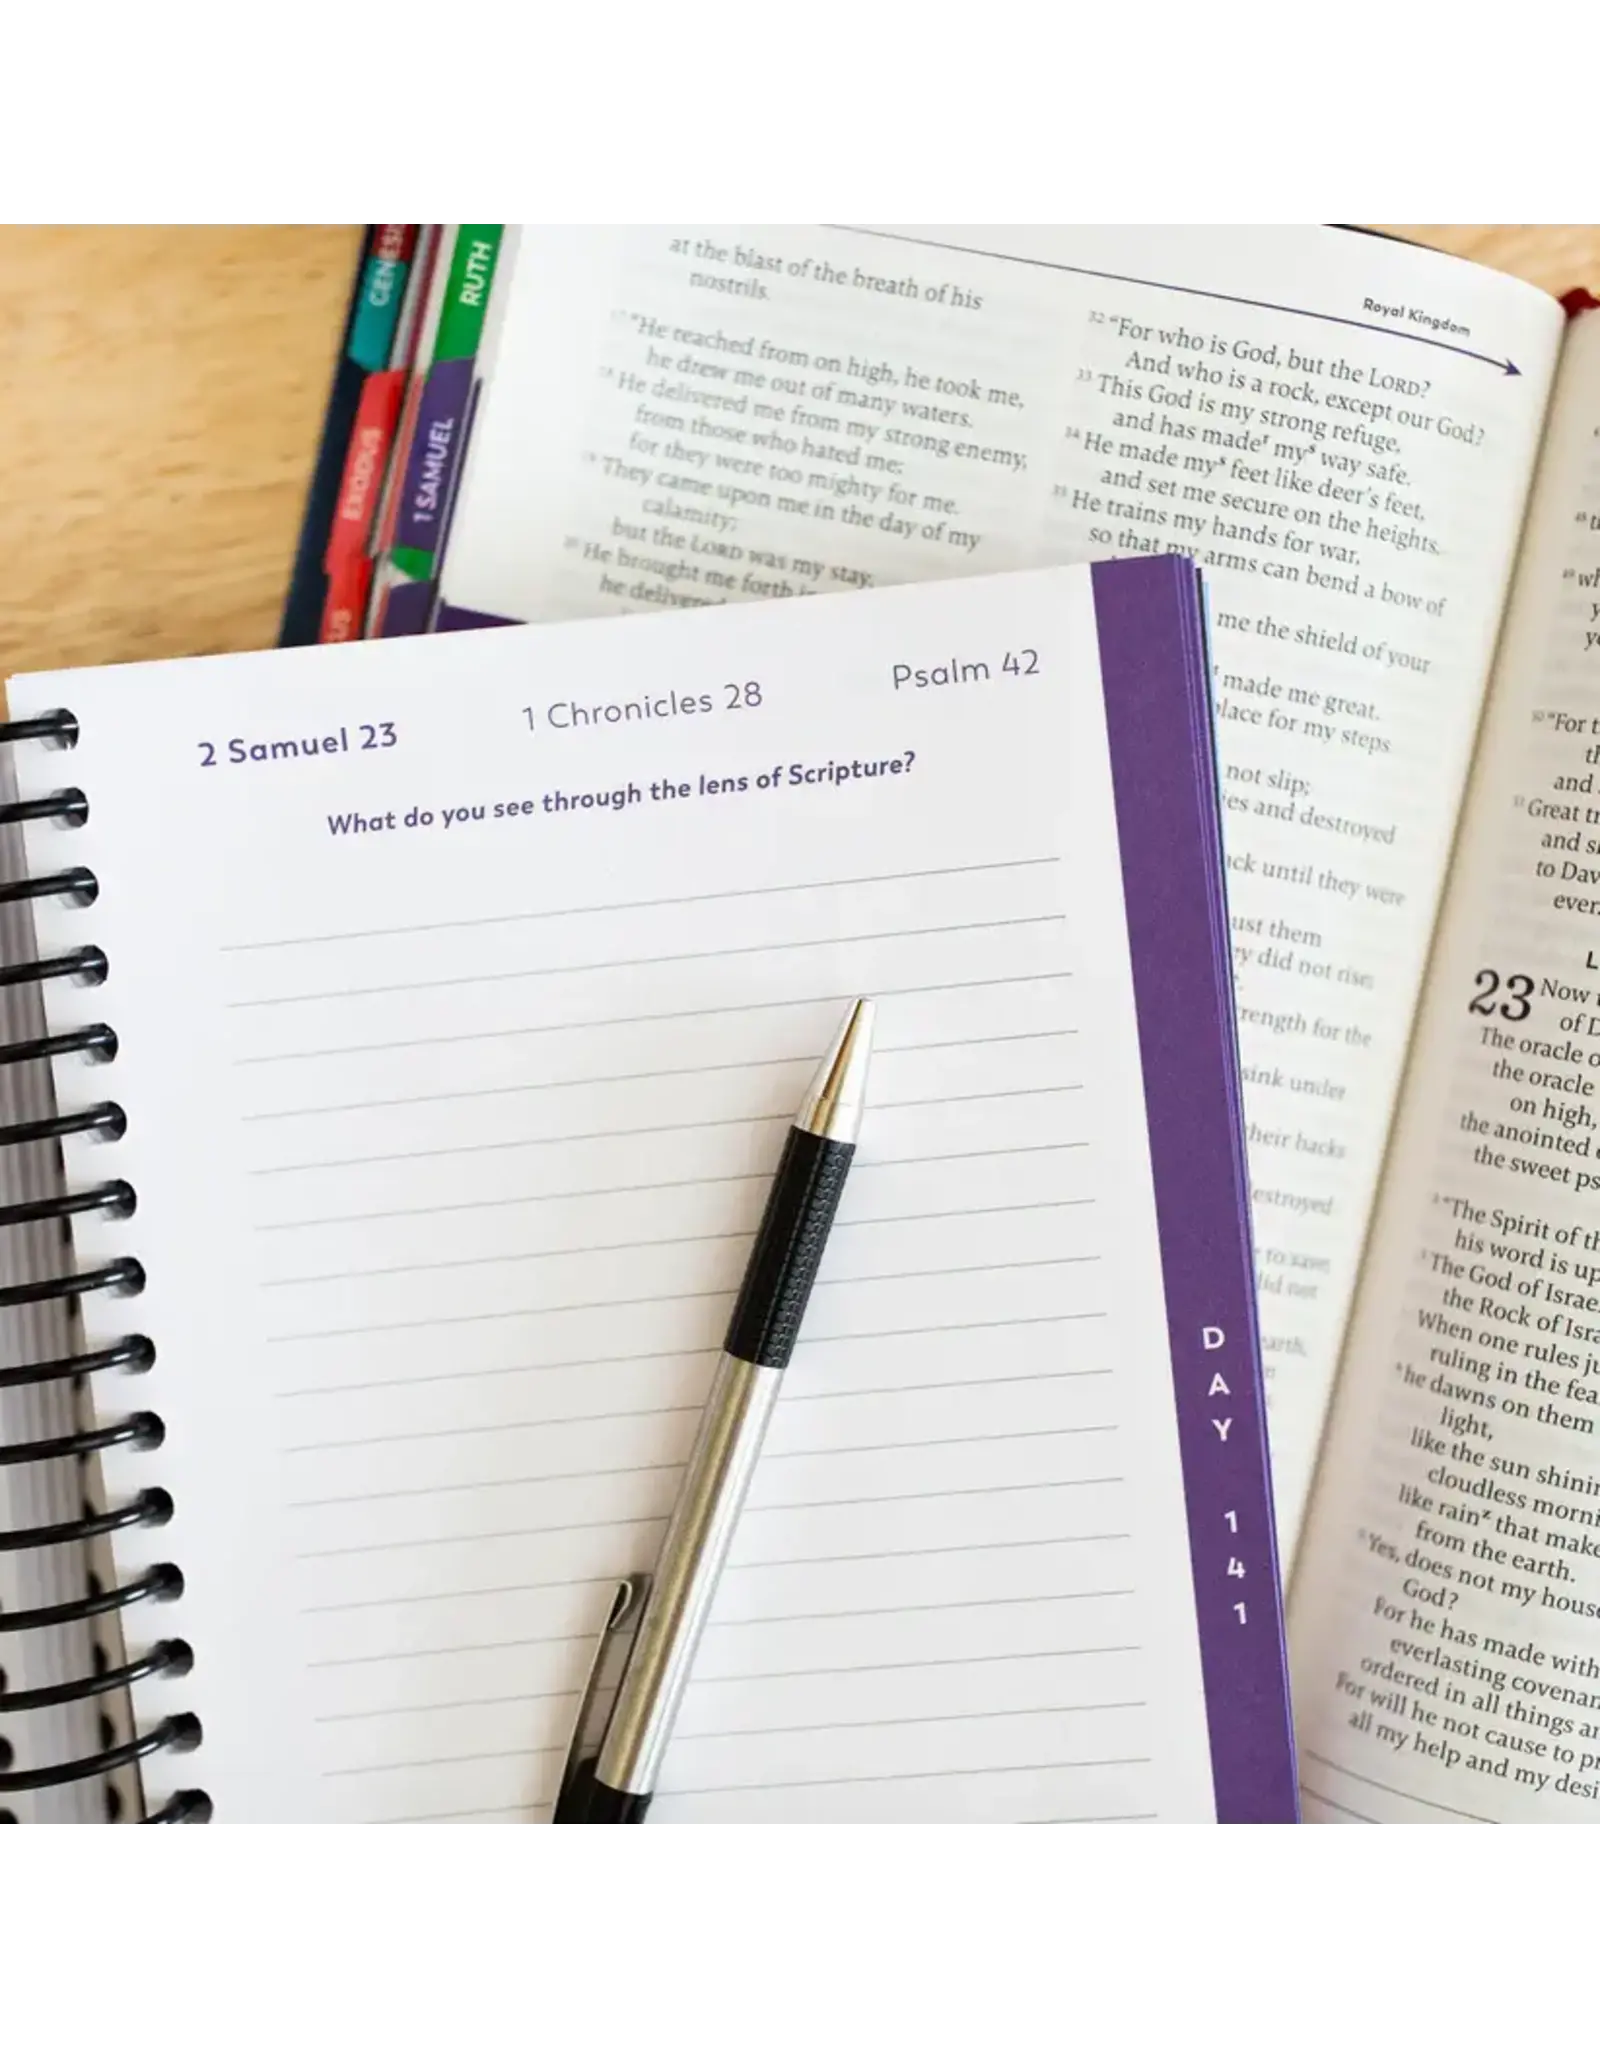 GENESI
EXODUS
US
RUTH
1 SAMUEL
at the blast of the breath of his
nostrils.
17 "He reached from on high, he took me,
he drew me out of many waters.
18 He delivered me from my strong enemy,
from those who hated me;
for they were too mighty for me.
19 They came upon me in the day of my
calamity;
but the LORD was my stay.
20 He brought me forth
he delivered
Royal Kingdom
32 "For who is God, but the LORD?
And who is a rock, except our God?
33 This God is my strong refuge,
and has made r my s way safe.
34 He made my s feet like deer's feet,
and set me secure on the heights.
35 He trains my hands for war,
so that my arms can bend a bow of
me the shield of your
made me great.
place for my steps
not slip;
ies and destroyed
ack until they were
ust them
ey did not rise;
rength for the
sink under
their backs
estroyed
to save
did not
earth,
2 Samuel 23
1 Chronicles 28
Psalm 42
What do you see through the lens of Scripture?
DAY 141
"For t
th
and
Great tr
and s
to Dav
ever.
L
23 Now
of D
The oracle o
the oracle
on high,
the anointed
the sweet ps
2 "The Spirit of th
his word is up
3 The God of Israe
the Rock of Isra
When one rules ju
ruling in the fea
4 he dawns on them
light,
like the sun shinin
cloudless morni
like rain z that make
from the earth.
5 Yes, does not my hous
God?
For he has made with
everlasting covenan
ordered in all things an
For will he not cause to pr
all my help and my desi